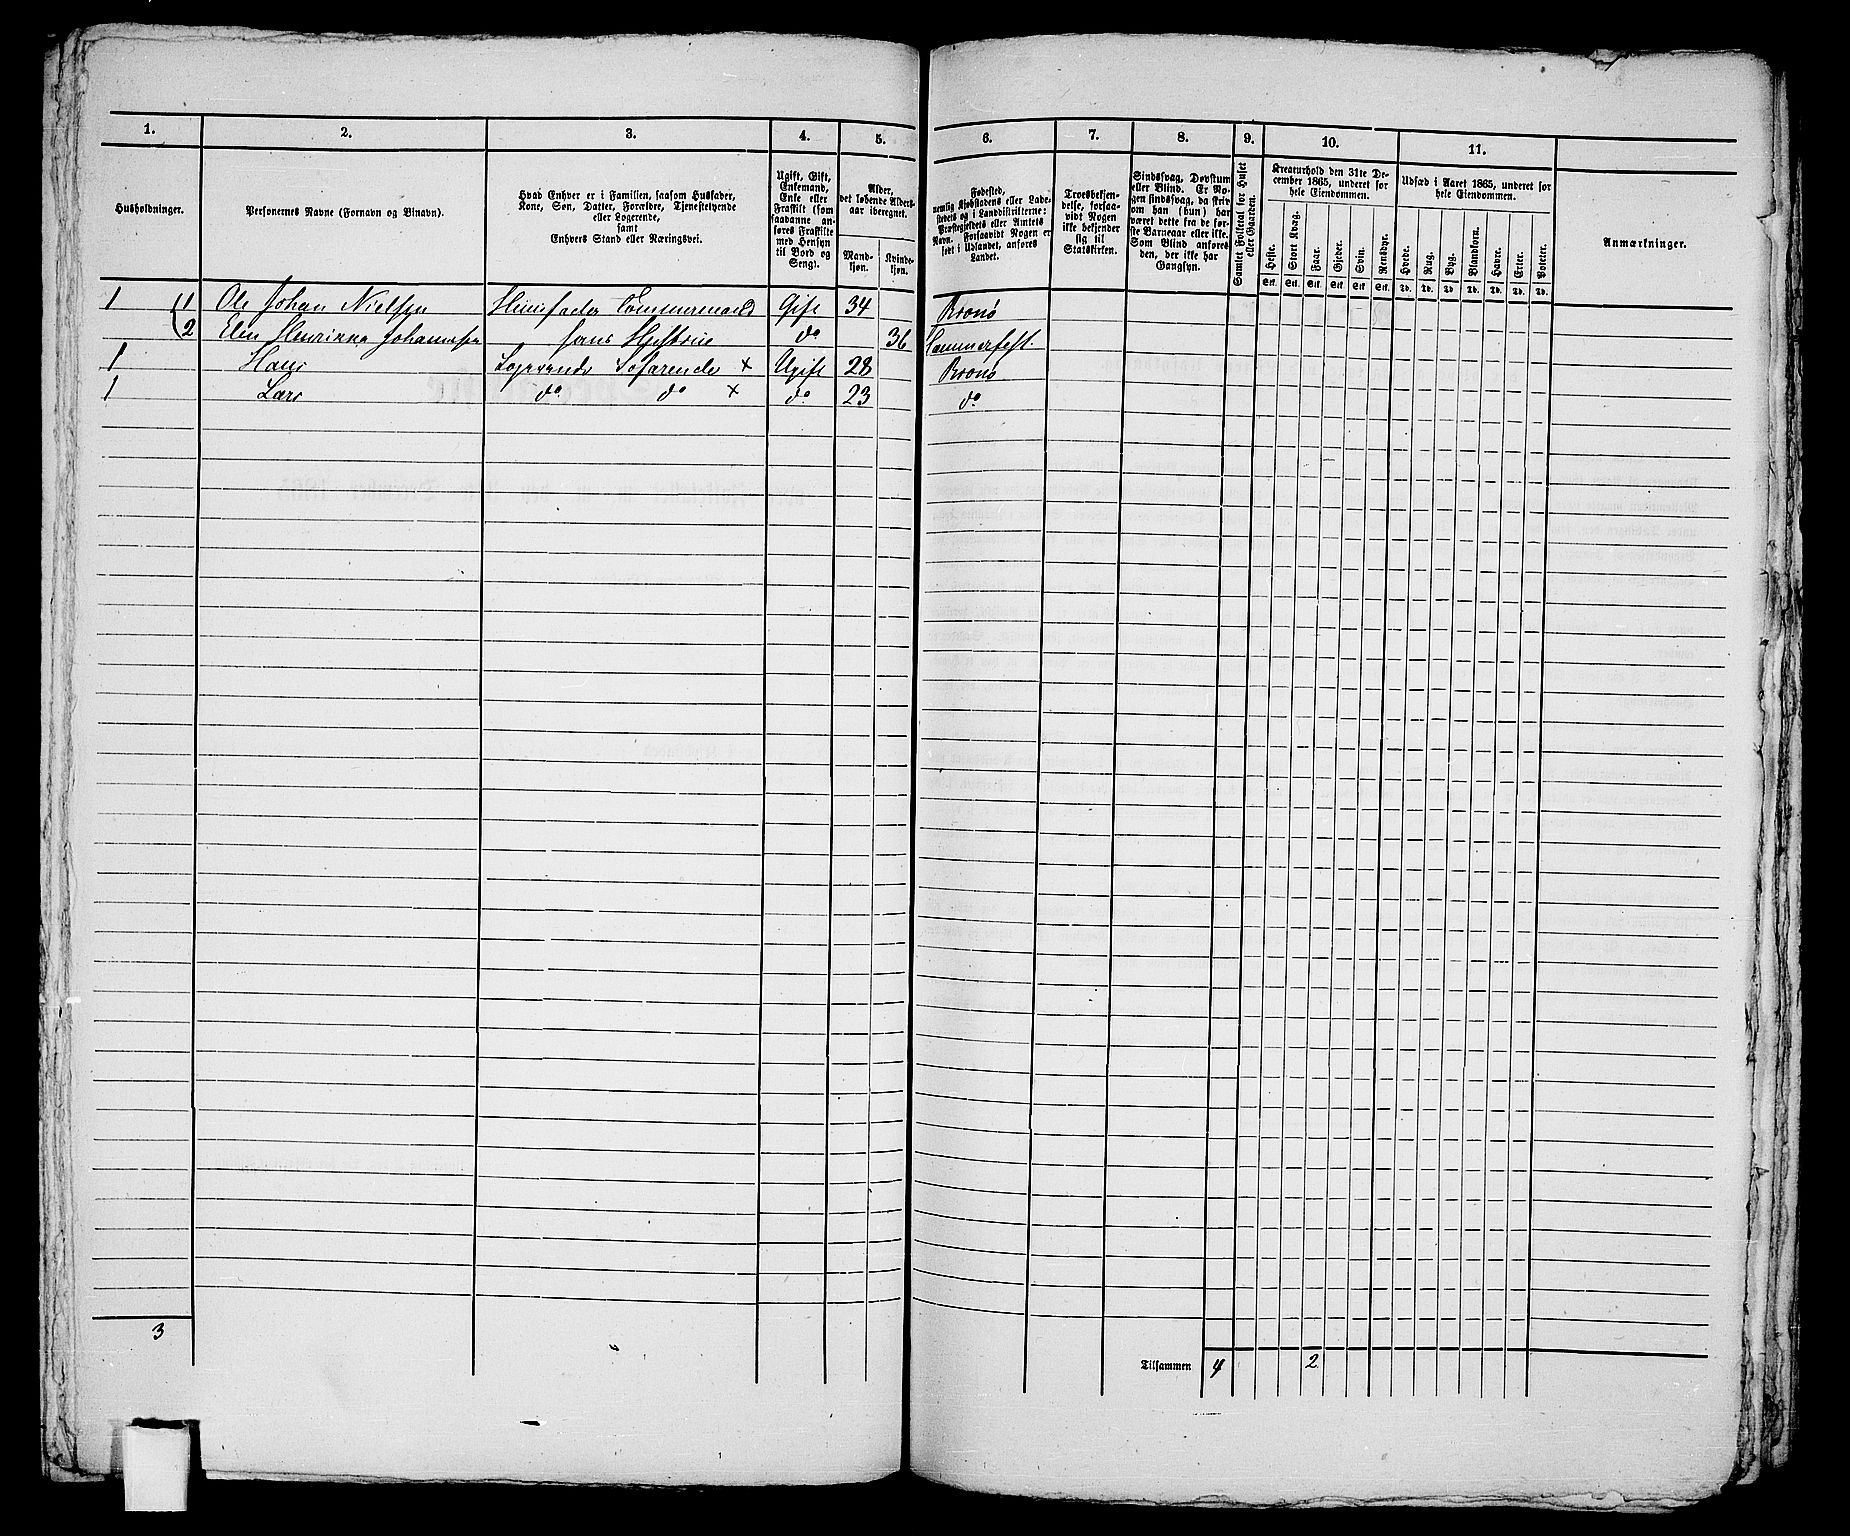 1. 2. 3. 4. 5. 6. 7. 8. 9. 10. 11.
Husholdninger.
Personernes Navne (Fornavn og Binavn).
Hvad Enhver er i Familien, saasom Husfader,
Kone, Søn, Datter, Forældre, Tjenestetyende
eller Logerende,
samt
Enhvers Stand eller Næringsvei.
Ugift, Gift,
Enkemand,
Enke eller
Fraskilt (som
saadanne an-
føres Fraskilte
med Hensyn
til Bord og
Seng).
Alder,
det løbende Alders-
aar iberegnet.
Mand-
kjøn.
Kvinde-
kjøn.
Fødested,
nemlig Kjøbstadens eller Lade-
stedets og i Landdistrikterne:
Præstegjeldets eller Amtets
Navn. Forsaavidt Nogen er
født i Udlandet, anføres
Landet.
Troesbekjen-
delse, forsaa-
vidt Nogen
ikke bekjender
sig til
Statskirken.
Sindssvag, Døvstum
eller Blind. Er No-
gen sindssvag, da skriv
om han (hun) har
været dette fra de før-
ste Barneaar eller ikke.
Som Blind anføres
den, der ikke har
Gangsyn.
Samlet Folketal for Huset
eller Gaarden.
Kreaturhold den 31te De-
cember 1865, underet for
hele Eiendommen.
Heste. Stort Kvæg. Faar. Gjeder. Svin. Rensdyr.
Stk. Stk. Stk. Stk. Stk. Stk.
Udsæd i Aaret 1865, underet for
hele Eiendommen.
Hvede. Rug. Byg. Blandkorn. Havre. Erter. Poteter.
Td. Td. Td. Td. Td. Td. Td.
Anmærkninger.
1 1 Ole Johan Nielsen Huusfader Tømmermand Gift 34 Bronø
2 Elen Henrikka Johannesen hans Hustrue do 36 Hammerfest
1 Hans Logerende Søfarende × Ugift 28 Bronø
1 Lars do do × do 23 do
3
Tilsammen 4 2